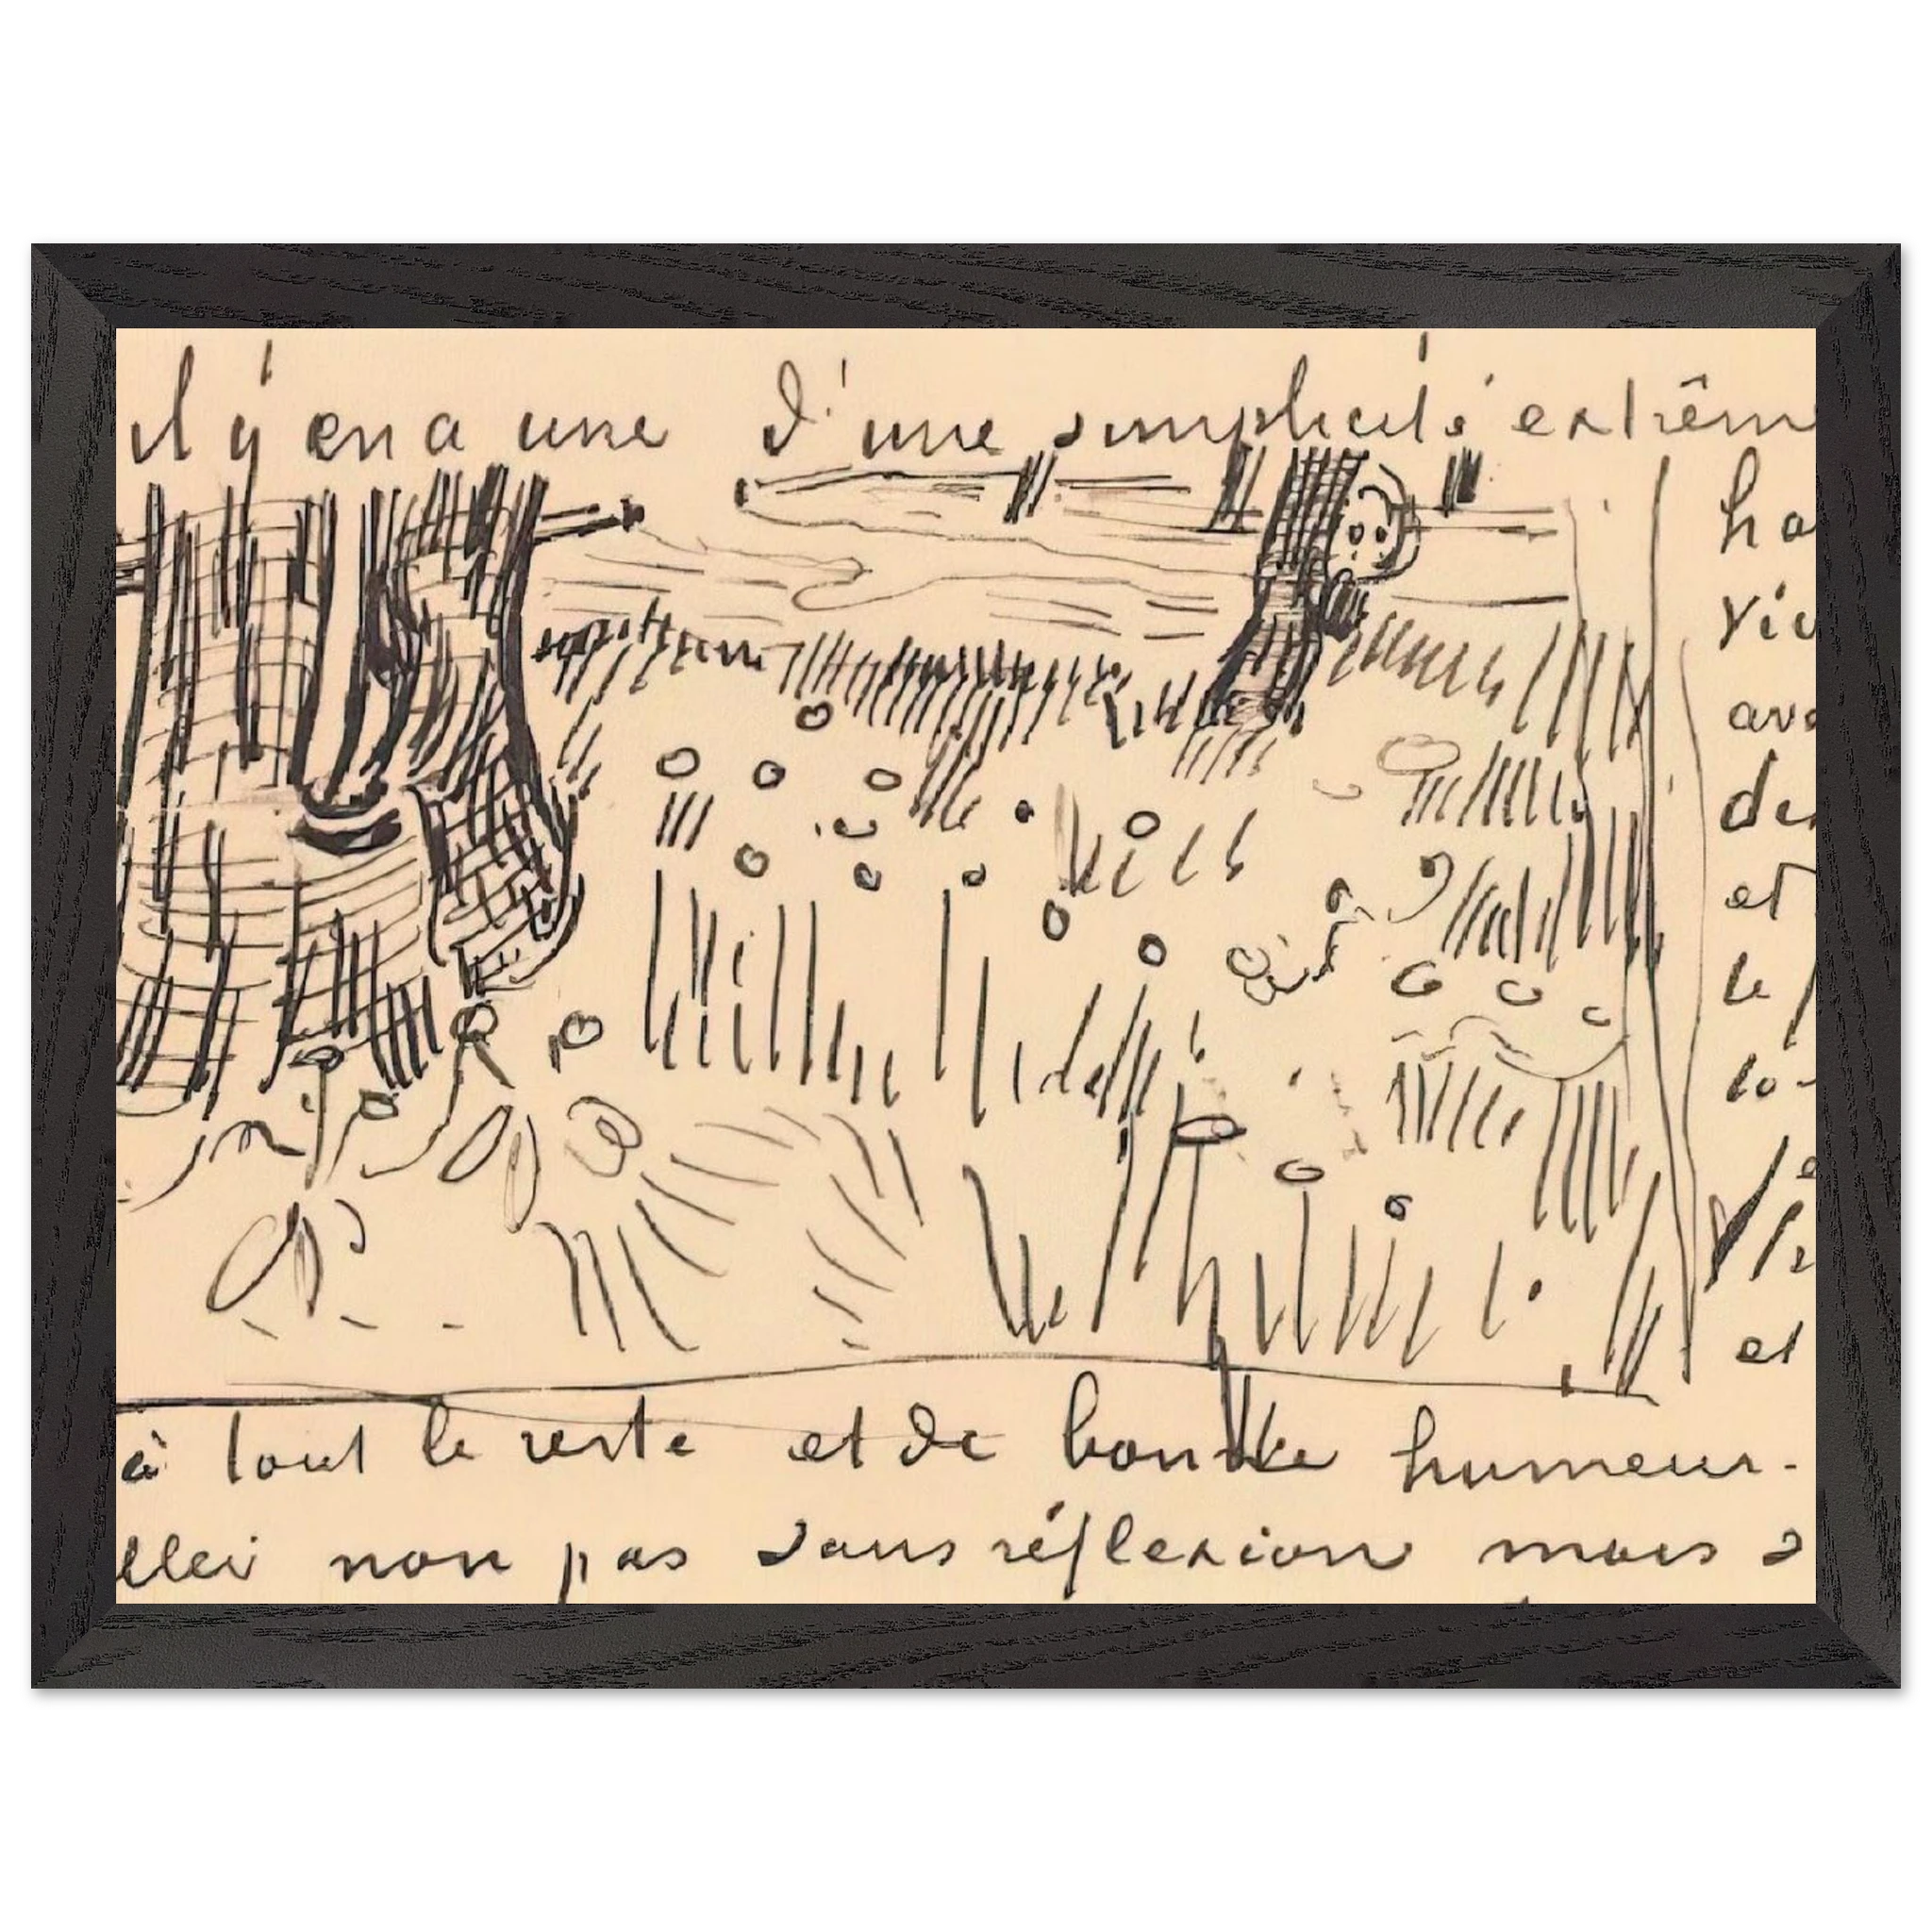 il y en a une d'une simplicité extrêm
ho
viv
ava
de
et
le
la
et
à tout le reste et de bonne humeur.
non pas sans réflexion mais